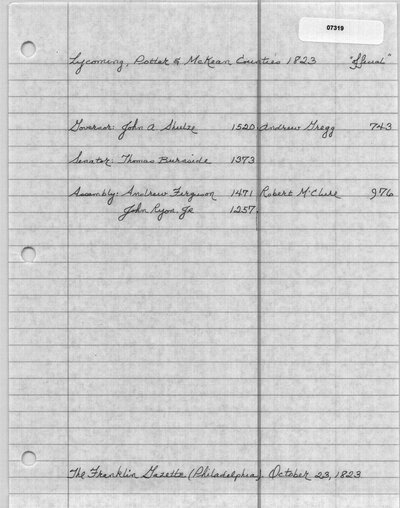 07319
Lycoming, Potter & McKean Counties 1823 "Official"
Governor: John A Shulze 1520 Andrew Gregg 743
Senator: Thomas Burnside 1373
Assembly: Andrew Ferguson 1471 Robert McClure 976
John Ryon Jr 1257
The Franklin Gazette (Philadelphia). October 23, 1823